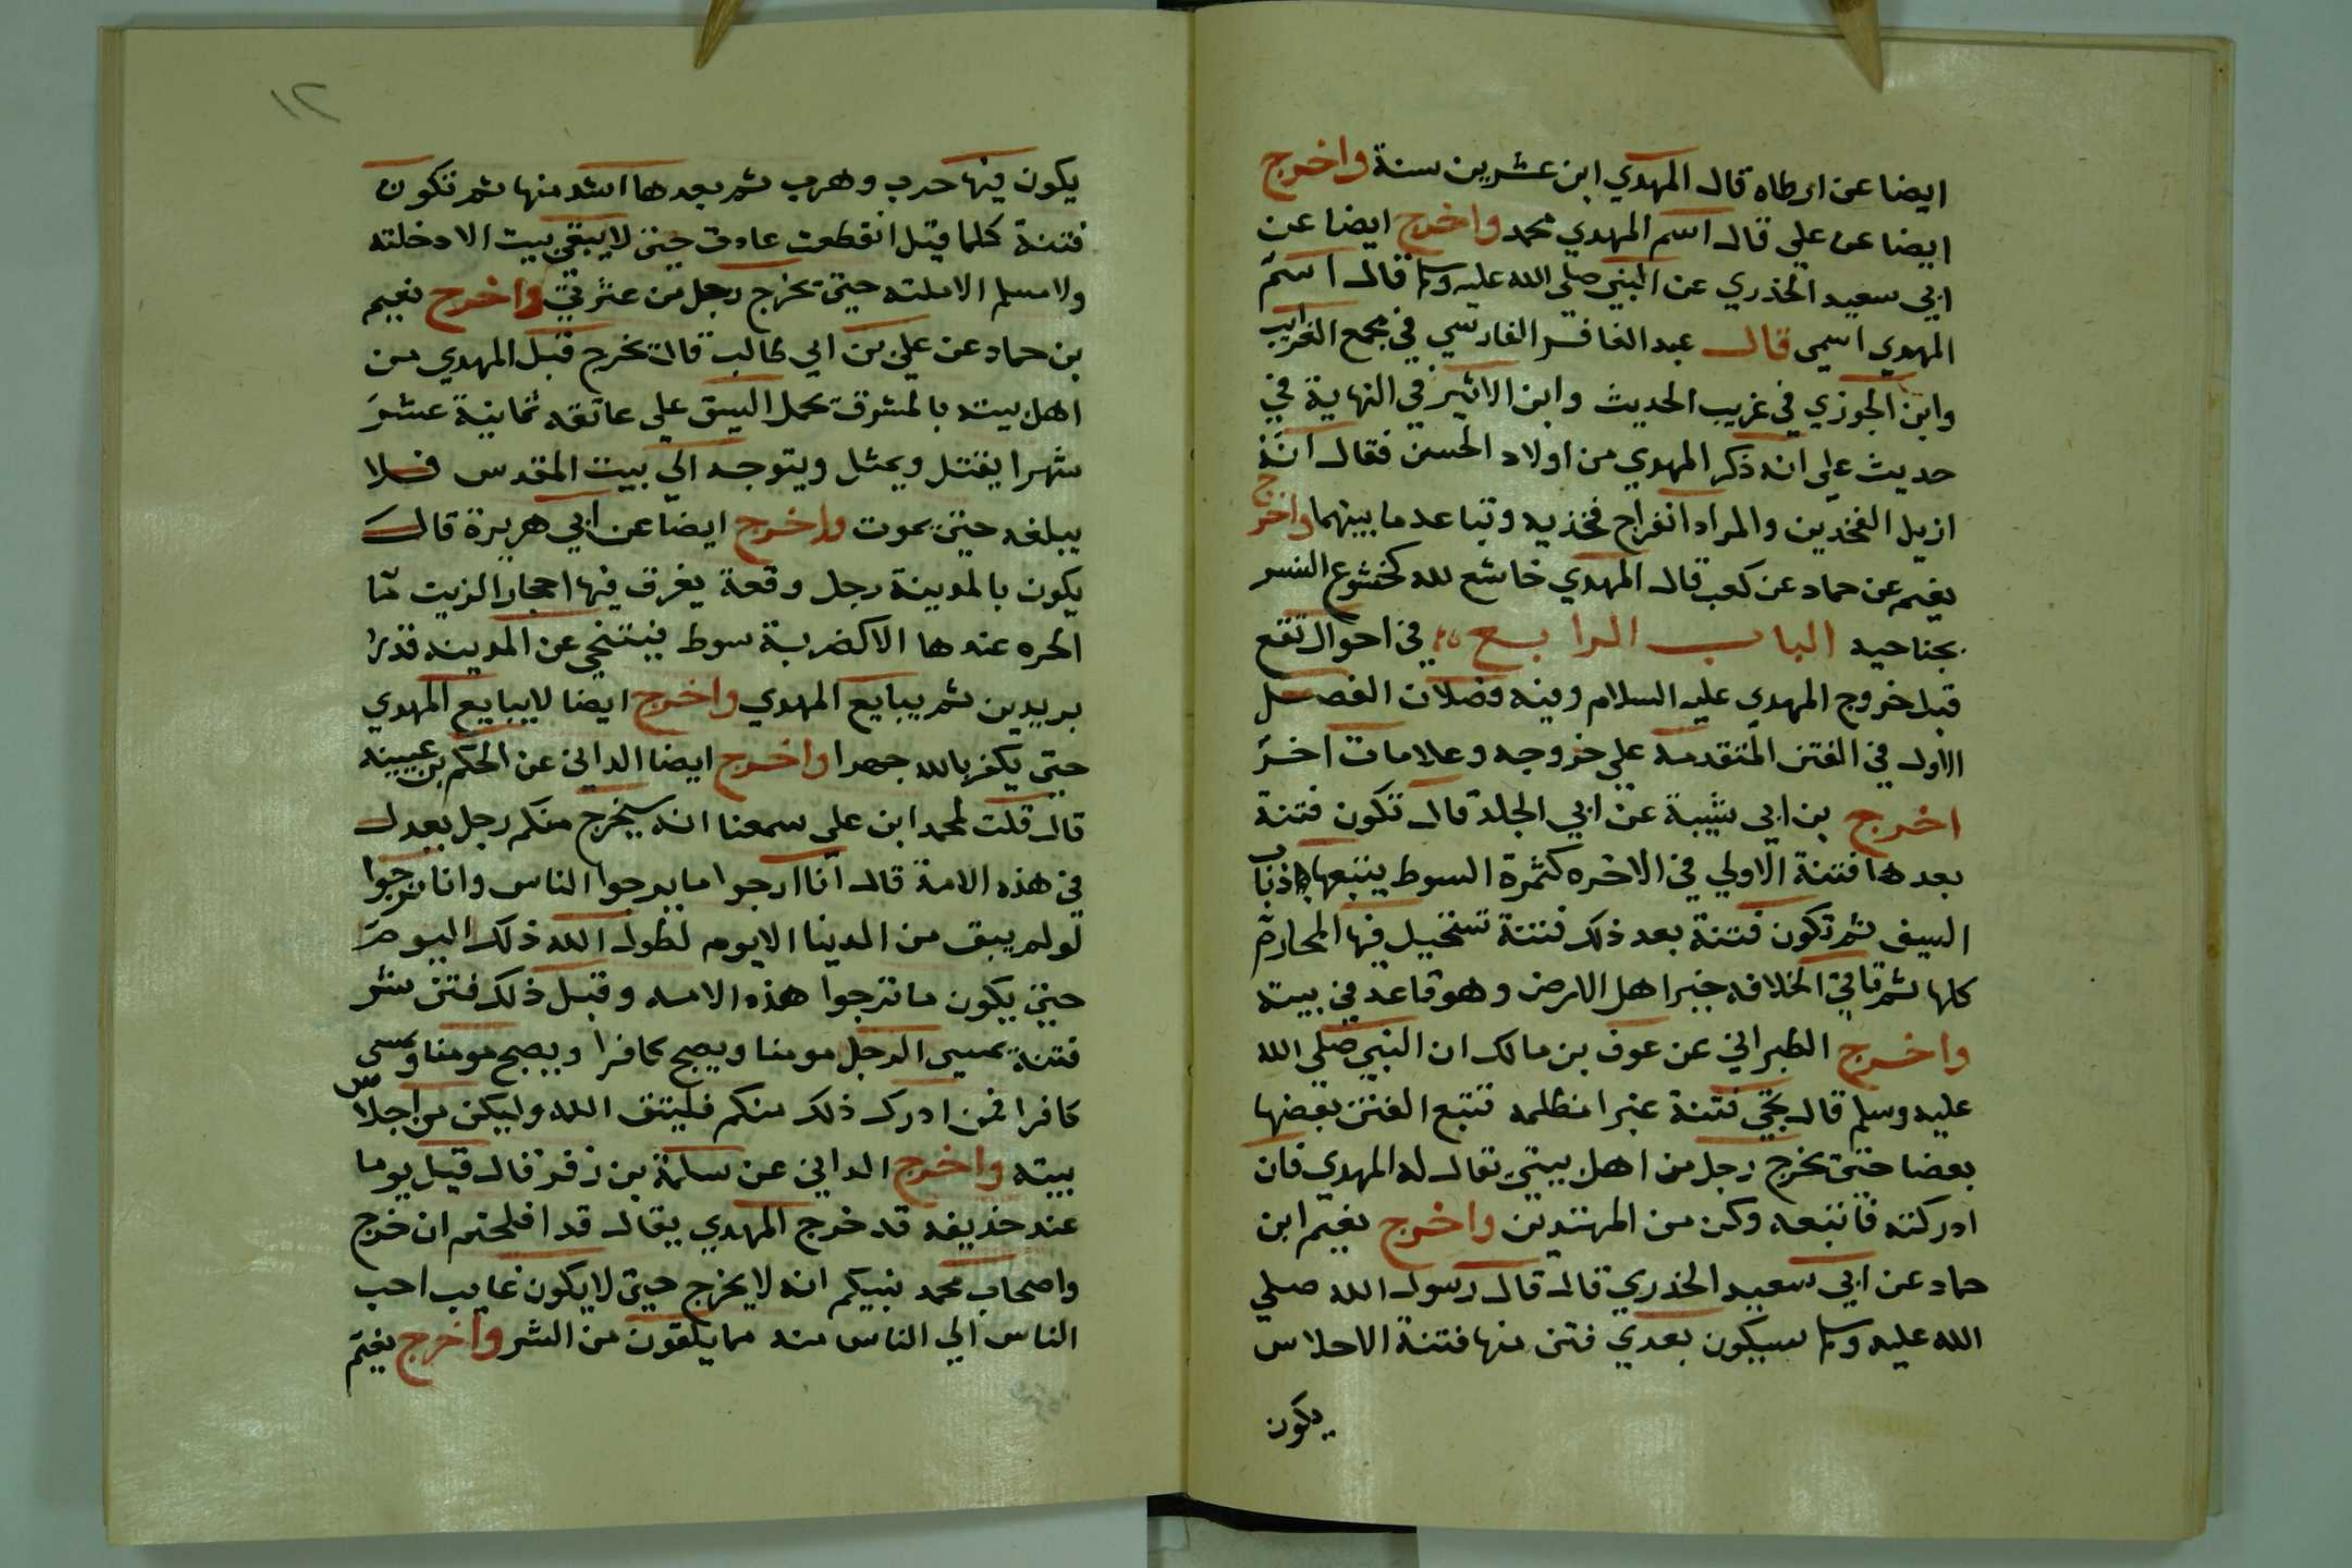 ايضا عن ارطاه قال المهدي ابن عشرين سنة واخرج
ايضا عن علي قال اسم المهدي محمد واخرج ايضا عن
ابي سعيد الخدري عن النبي صلى الله عليه وسلم قال اسم
المهدي اسمي قال عبد الغافر الفارسي في مجمع الغرايب
وابن الجوزي في غريب الحديث وابن الاثير في النهاية في
حديث علي انه ذكر المهدي من اولاد الحسن فقال انه
ازيل الفخدين والمراد انفراج فخذيه وتباعد ما بينهما واخرج
نعيم عن حماد عن كعب قال المهدي خاشع لله كخشوع النسر
بجناحيه الباب الرابع في احوال تقع
قبل خروج المهدي عليه السلام وفيه فضلان الفصل
الاول في الفتن المتقدمة علي خروجه وعلامات اخر
اخرج بن ابي شيبة عن ابي الجلد قال تكون فتنة
بعدها فتنة الاولي في الاخره كثمرة السوط يتبعها ذباب
السيف ثم تكون فتنة بعد ذلك فتنة تستحيل فيها المحارم
كلها ثم تاتي الخلافه خير اهل الارض وهو قاعد في بيته
واخرج الطبراني عن عوف بن مالك ان النبي صلي الله
عليه وسلم قال تجي فتنة غبرا مظلمه تتبع الفتن بعضها
بعضا حتى يخرج رجل من اهل بيتي يقال له المهدي فان
ادركته فاتبعه وكن من المهتدين واخرج نعيم ابن
حماد عن ابي سعيد الخدري قال قال رسول الله صلي
الله عليه وسلم سيكون بعدي فتن منها فتنة الاحلاس
يكون
١٢
يكون فيها حرب وهرب ثم بعدها اشد منها ثم تكون
فتنة كلما قيل انقطعت عادت حتى لا يبقي بيت الا دخلته
ولا مسلم الا ملته حتى يخرج رجل من عترتي واخرج نعيم
بن حماد عن علي بن ابي طالب قال يخرج قبل المهدي من
اهل بيته بالمشرق يحمل السيف علي عاتقه ثمانية عشر
شهرا يقتل ويمثل ويتوجه الي بيت المقدس فلا
يبلغه حتى يموت واخرج ايضا عن ابي هريرة قال
يكون بالمدينة رجل وقعة يغرق فيها احجار الزيت ما
الحره عندها الا كضربة سوط فيتنحي عن المدينه قدر
بريدين ثم يبايع المهدي واخرج ايضا لا يبايع المهدي
حتى يكفر بالله جهرا واخرج ايضا الداني عن الحكم بن عيينه
قال قلت لمحمد ابن علي سمعنا انه سيخرج منكم رجل يعدل
في هذه الامة قال انا ارجوا ما يرجوا الناس وانا نرجوا
لو لم يبق من الدنيا الا يوم لطول الله ذلك اليوم
حتى يكون ما نرجوا هذه الامه وقبل ذلك فتن شر
فتنة يمسي الرجل مومنا ويصبح كافرا ويصبح مومنا ويمسي
كافرا فمن ادرك ذلك منكم فليتق الله وليكن من اجلاس
بيته واخرج الداني عن سلمة بن زفر قال قيل يوما
عند حذيفه قد خرج المهدي يقال قد افلحتم ان خرج
واصحاب محمد نبيكم انه لا يخرج حتى لا يكون غايب احب
الناس الي الناس منه مما يلقون من الشر واخرج نعيم